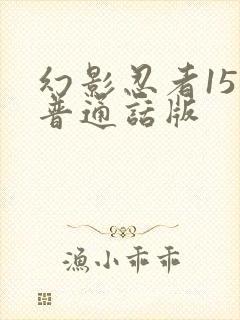 幻影忍者15
普通話版
漁小乖乖